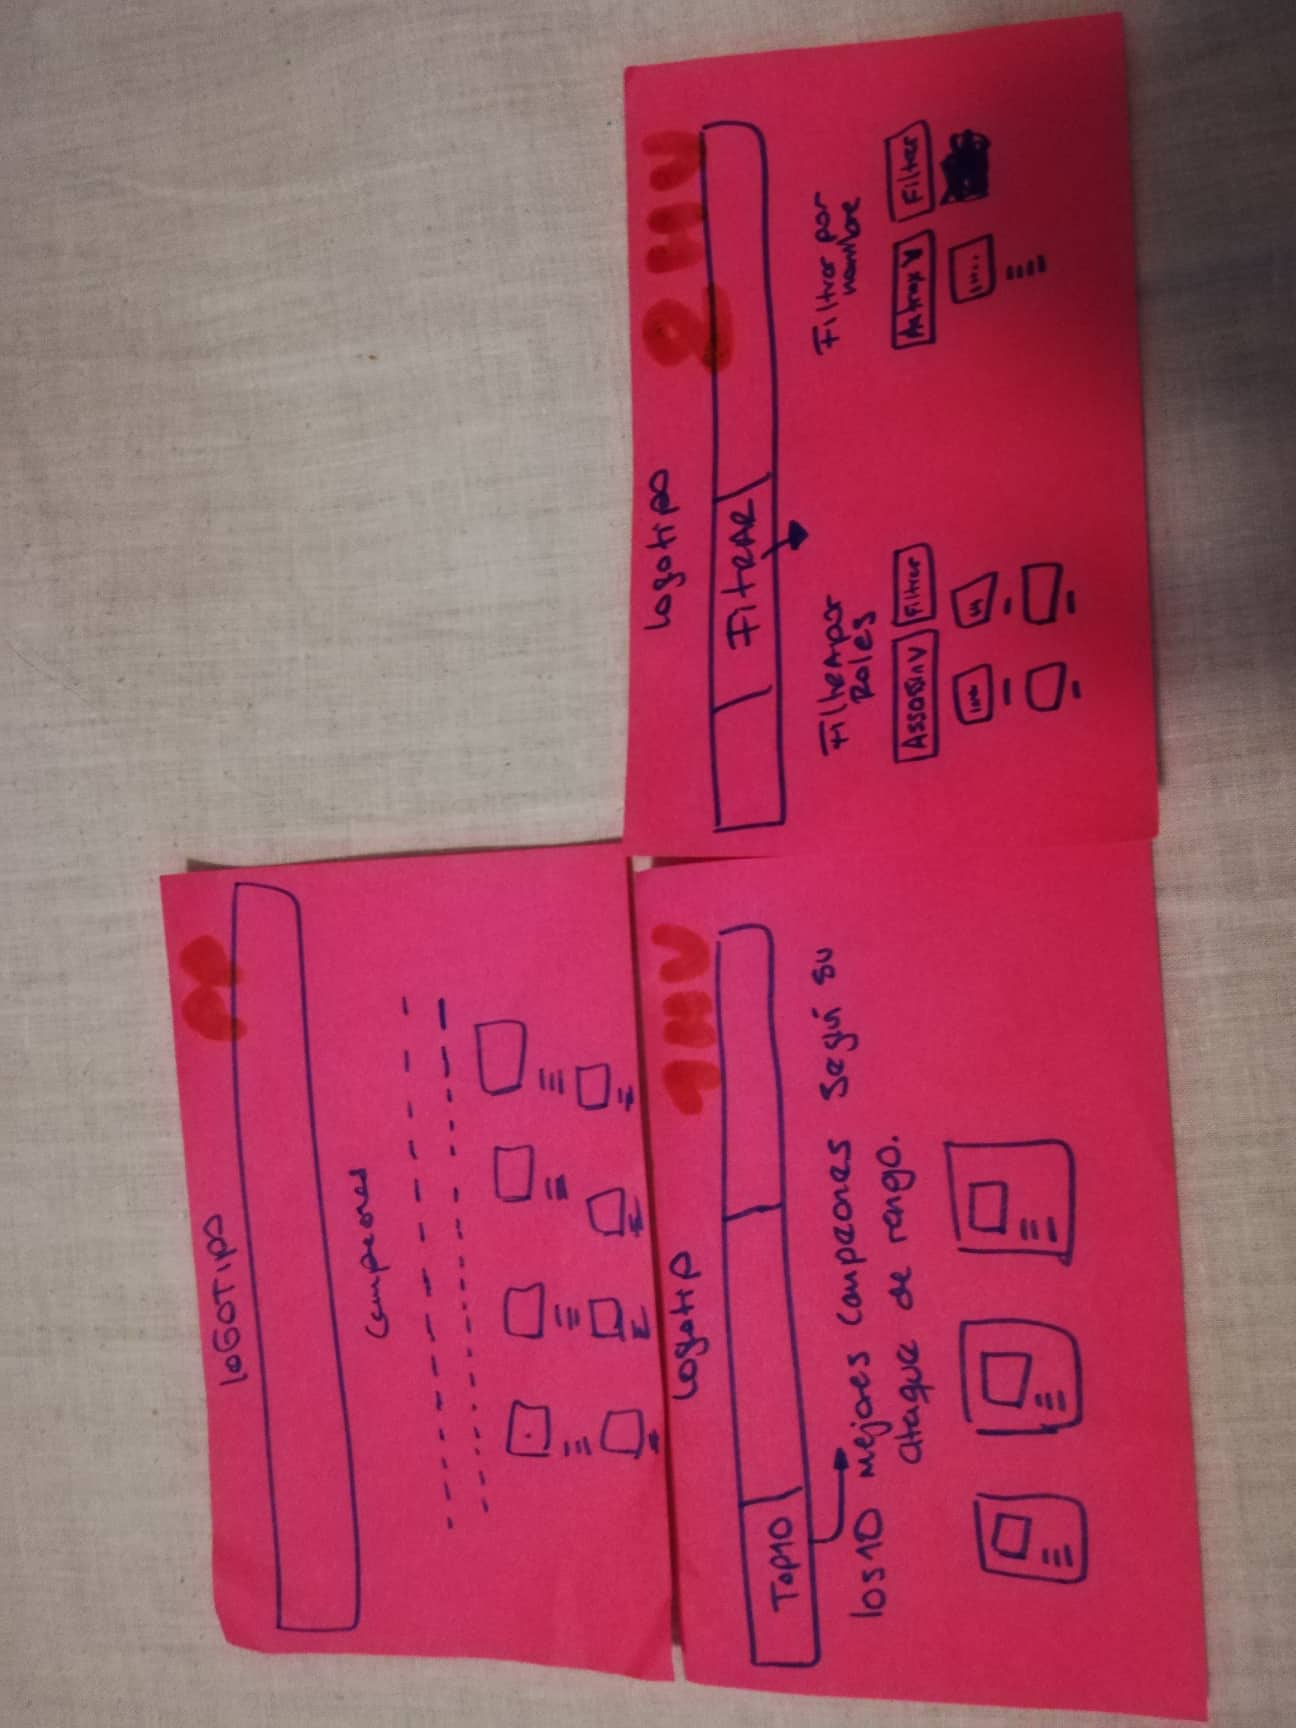 PP
loGOTIPO
Campeones
1HU
logotip
Top10
los 10 mejores campeones según su
ataque de rango.
2HU
logotipo
FiltRAR
FiltRApor
Roles
Assasin V
Filtrar
Filtrar por
nombre
Aatrox V
Filtrar